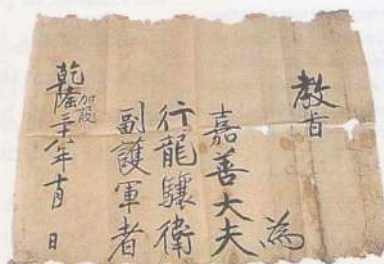 教旨
爲
嘉善大夫
行龍驤衛
副護軍者
乾隆二十八年十月 日
加設